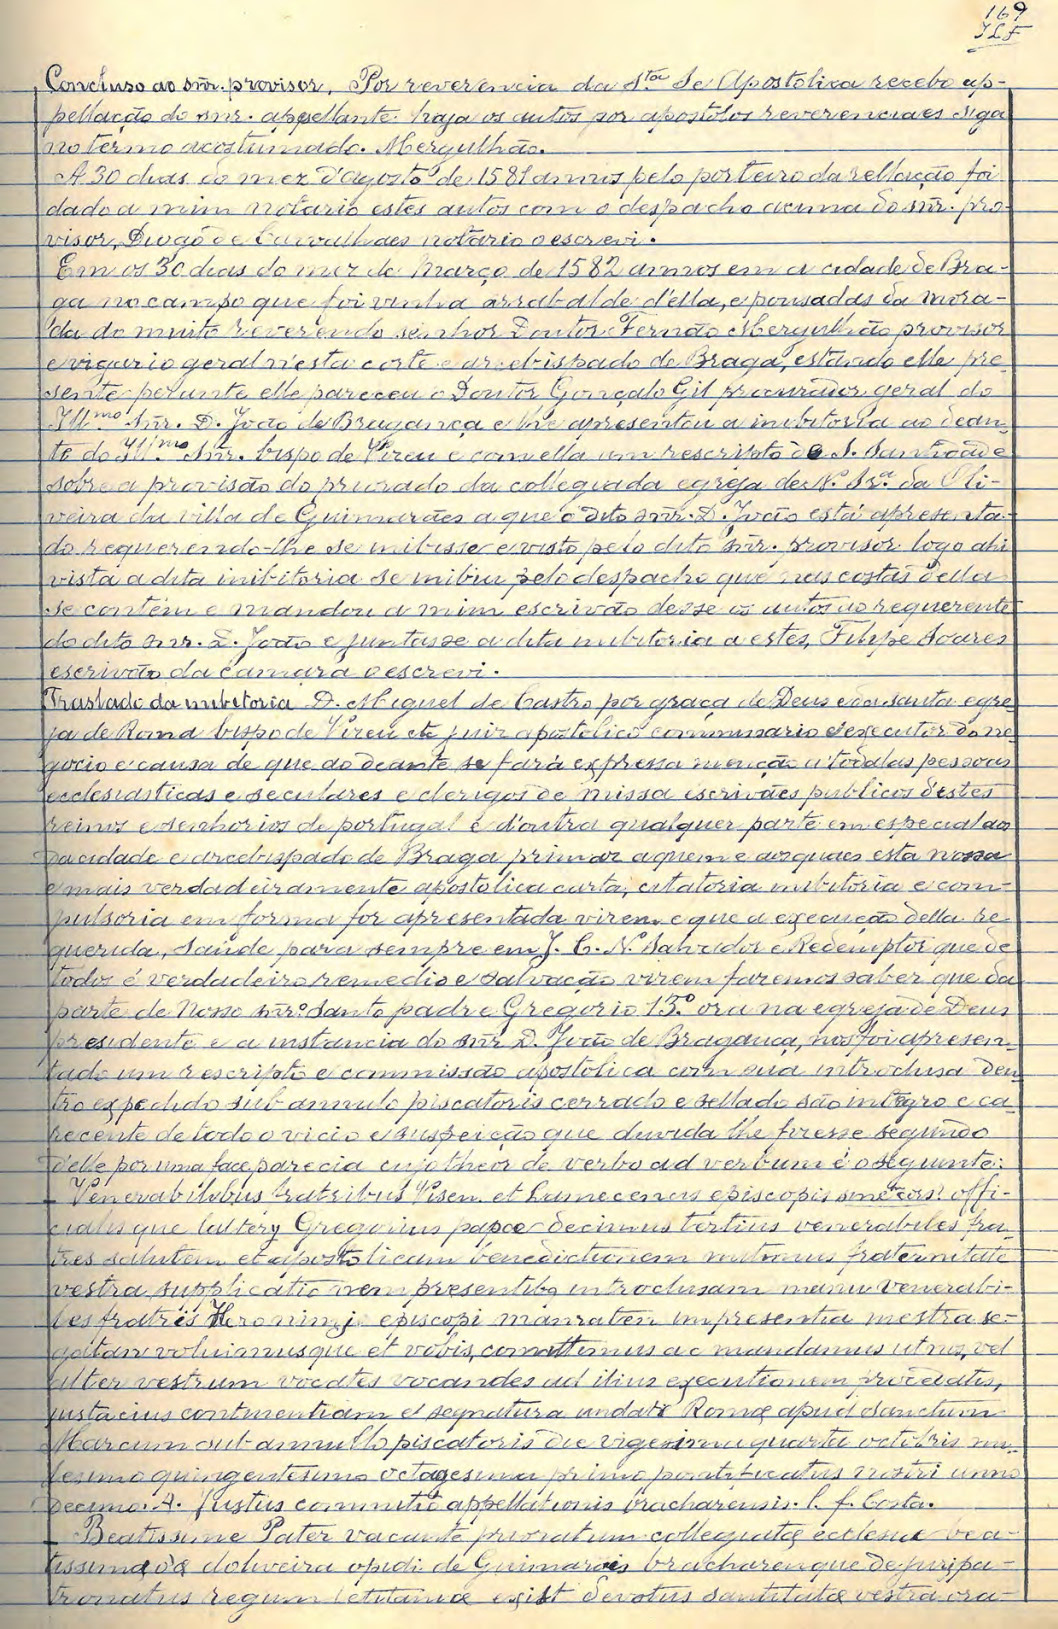 169
JLF
Concluso ao snr. provisor. Por reverencia da S.ta Se Apostolica recebo ap-
pellação do snr. appellante. haja os autos por apostolos reverenciaes siga
no termo acostumado. Mergulhão.
A 30 dias do mez d'agosto de 1581 annos pelo porteiro da rellação foi
dado a mim notario estes autos com o despacho acima do snr. pro-
visor, Diogo de Carvalhaes notario o escrevi.
Em os 30 dias do mez de Março de 1582 annos em a cidade de Bra-
ga no campo que foi vinha arrabalde d'ella, e pousadas da mora-
da do muito reverendo senhor Doutor Fernão Mergulhão provisor
e vigario geral n'esta corte e arcebispado de Braga, estando elle pre-
sente perante elle pareceu o Doutor Gonçalo Gil procurador geral do
Ill.mo Snr. D. João de Bragança e lhe apresentou a inibitoria ao dean-
te do Ill.mo Snr. bispo de Vizeu e com ella um rescripto de S. Santidade
sobre a provisão do priorado da collegiada egreja de N. Sr.a da Oli-
veira da villa de Guimarães a que o dito snr. D. João está apresenta-
do requerendo-lhe se inibisse e visto pelo dito snr. provisor logo ahi
vista a dita inibitoria se inibiu pelo despacho que nas costas della
se contém e mandou a mim escrivão desse os autos ao requerente
do dito snr. D. João e juntasse a dita inibitoria a estes, Filipe Soares
escrivão da camara o escrevi.
Traslado da inibitoria D. Miguel de Castro por graça de Deus e da santa egre-
ja de Roma bispo de Vizeu etc juiz apostolico commissario e executor do ne-
gocio e causa de que ao deante se fará expressa menção a todalas pessoas
ecclesiasticas e seculares e clerigos de missa escrivães publicos d'estes
reinos e senhorios de portugal e d'outra qualquer parte em especial ao
da cidade e arcebispado de Braga primaz a quem e aos quaes esta nossa
e mais verdadeiramente apostolica carta, citatoria inibitoria e com-
pulsoria em forma for apresentada virem e que a execução della re-
querida, saude para sempre em J. C. N. Salvador e Redemptor que de
todos é verdadeiro remedio e salvação virem faremos saber que da
parte de Nosso snr. Santo padre Gregorio 13.º ora na egreja de Deus
presidente e a instancia do snr D. João de Bragança, nos foi apresen-
tado um rescripto e commissão apostolica com sua introclusa den-
tro expedido sub annulo piscatoris cerrado e sellado são integro e ca-
recente de todo o vicio e suspeição que duvida lhe fizesse segundo
d'elle por uma face parecia cujo theor de verbo ad verbum é o seguinte:
Venerabilibus fratribus Visen. et Lamecensis episcopis offi-
cialis que Gregorius papae decimus tertius venerabiles fra-
tres salutem et apostolicam benedictionem mitimus fraternitati
vestra supplicationem presentibus introclusam manu venerabi-
les fratris Heronimi episcopi in presentia nostra se-
volumusque et vobis, comittimus ac mandamus ut nos, vel
alter vestrum vocates vocandes ad ilius executionem procedatis,
justa eius continentiam et segnatura Romae apud Sanctum
Marcum sub annullo piscatoris die vigesima quarta octobris mi-
lesimo quingentesimo octagesima primo pontificatus nostri anno
decimo. A. Justus comitio appellationis bracharensis. C. f. Costa.
Beatissime Pater vacante prioratum collegiatae ecclesia bea-
tissima de doliveira opidi de Guimarais que de juripa-
tronatus regum exist devotus santitate vestra ora-